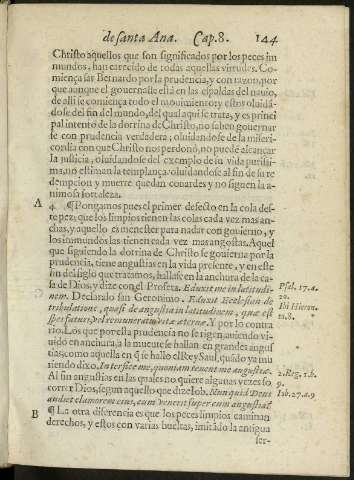 de santa Ana. Cap. 8. 144
Christo aquellos que son significados por los peces im
mundos, han carecido de todas aquellas virtudes. Co-
miença san Bernardo por la prudencia, y con razon, por
que aunque el gouernasle está en las espaldas del nauio,
de alli se comiença todo el mouimiento: y estos oluidã-
dose del fin del mundo, del qual aqui se trata, y es princi
pal intento de la dotrina de Christo, no saben gouernar
se con prudencia verdadera: oluidandose de la miseri-
cordia con que Christo nos perdonó, no puede alcançar
la justicia, oluidandose del exemplo de su vida purissi-
ma, no estiman la templança: oluidandose al fin de su re
dempcion y muerte quedan couardes y no siguen la ani-
mosa fortaleza.
A 4. ¶ Pongamos pues el primer defecto en la cola des-
te pez, que los limpios tienen las colas cada vez mas an-
chas, y aquello es menester para nadar con gouierno, y
los inmundos las tienen cada vez mas angostas. Aquel
que siguiendo la dotrina de Christo se gouierna por la
prudencia, tiene angustias en la vida presente, y en este
fin del siglo que tratamos, hallase en la anchura de la ca-
sa de Dios, y dize con el Profeta. Eduxit me in latitudi-
nem. Declaralo san Geronimo. Eduxit Ecclesiam de
tribulatione, quasi de angustia in latitudinem, quæ est
spes futuri, vel remuneratio vitæ æternæ. Y por lo contra
rio. Los que por esta prudencia no se rigen, auiendo vi-
uido en anchura, a la muerte se hallan en grandes angus
tias, como aquella en q̃ se hallo el Rey Saul, quãdo ya mu
riendo dixo. Interfice me, quoniam tenent me angustiæ.
Al fin angustias en las quales no quiere algunas vezes so
correr Dios, segun aquello que dize Iob. Nunquid Deus
audiet clamorem eius, cum venerit super eum angustia?
B ¶ La otra diferencia es que los peces limpios caminan
derechos, y estos con varias bueltas, imitãdo la antigua
ser-
Psal. 17. a.
20.
Ibi Hieron.
to. 8.
2. Reg. 1. b.
9.
Iob. 27. a. 9